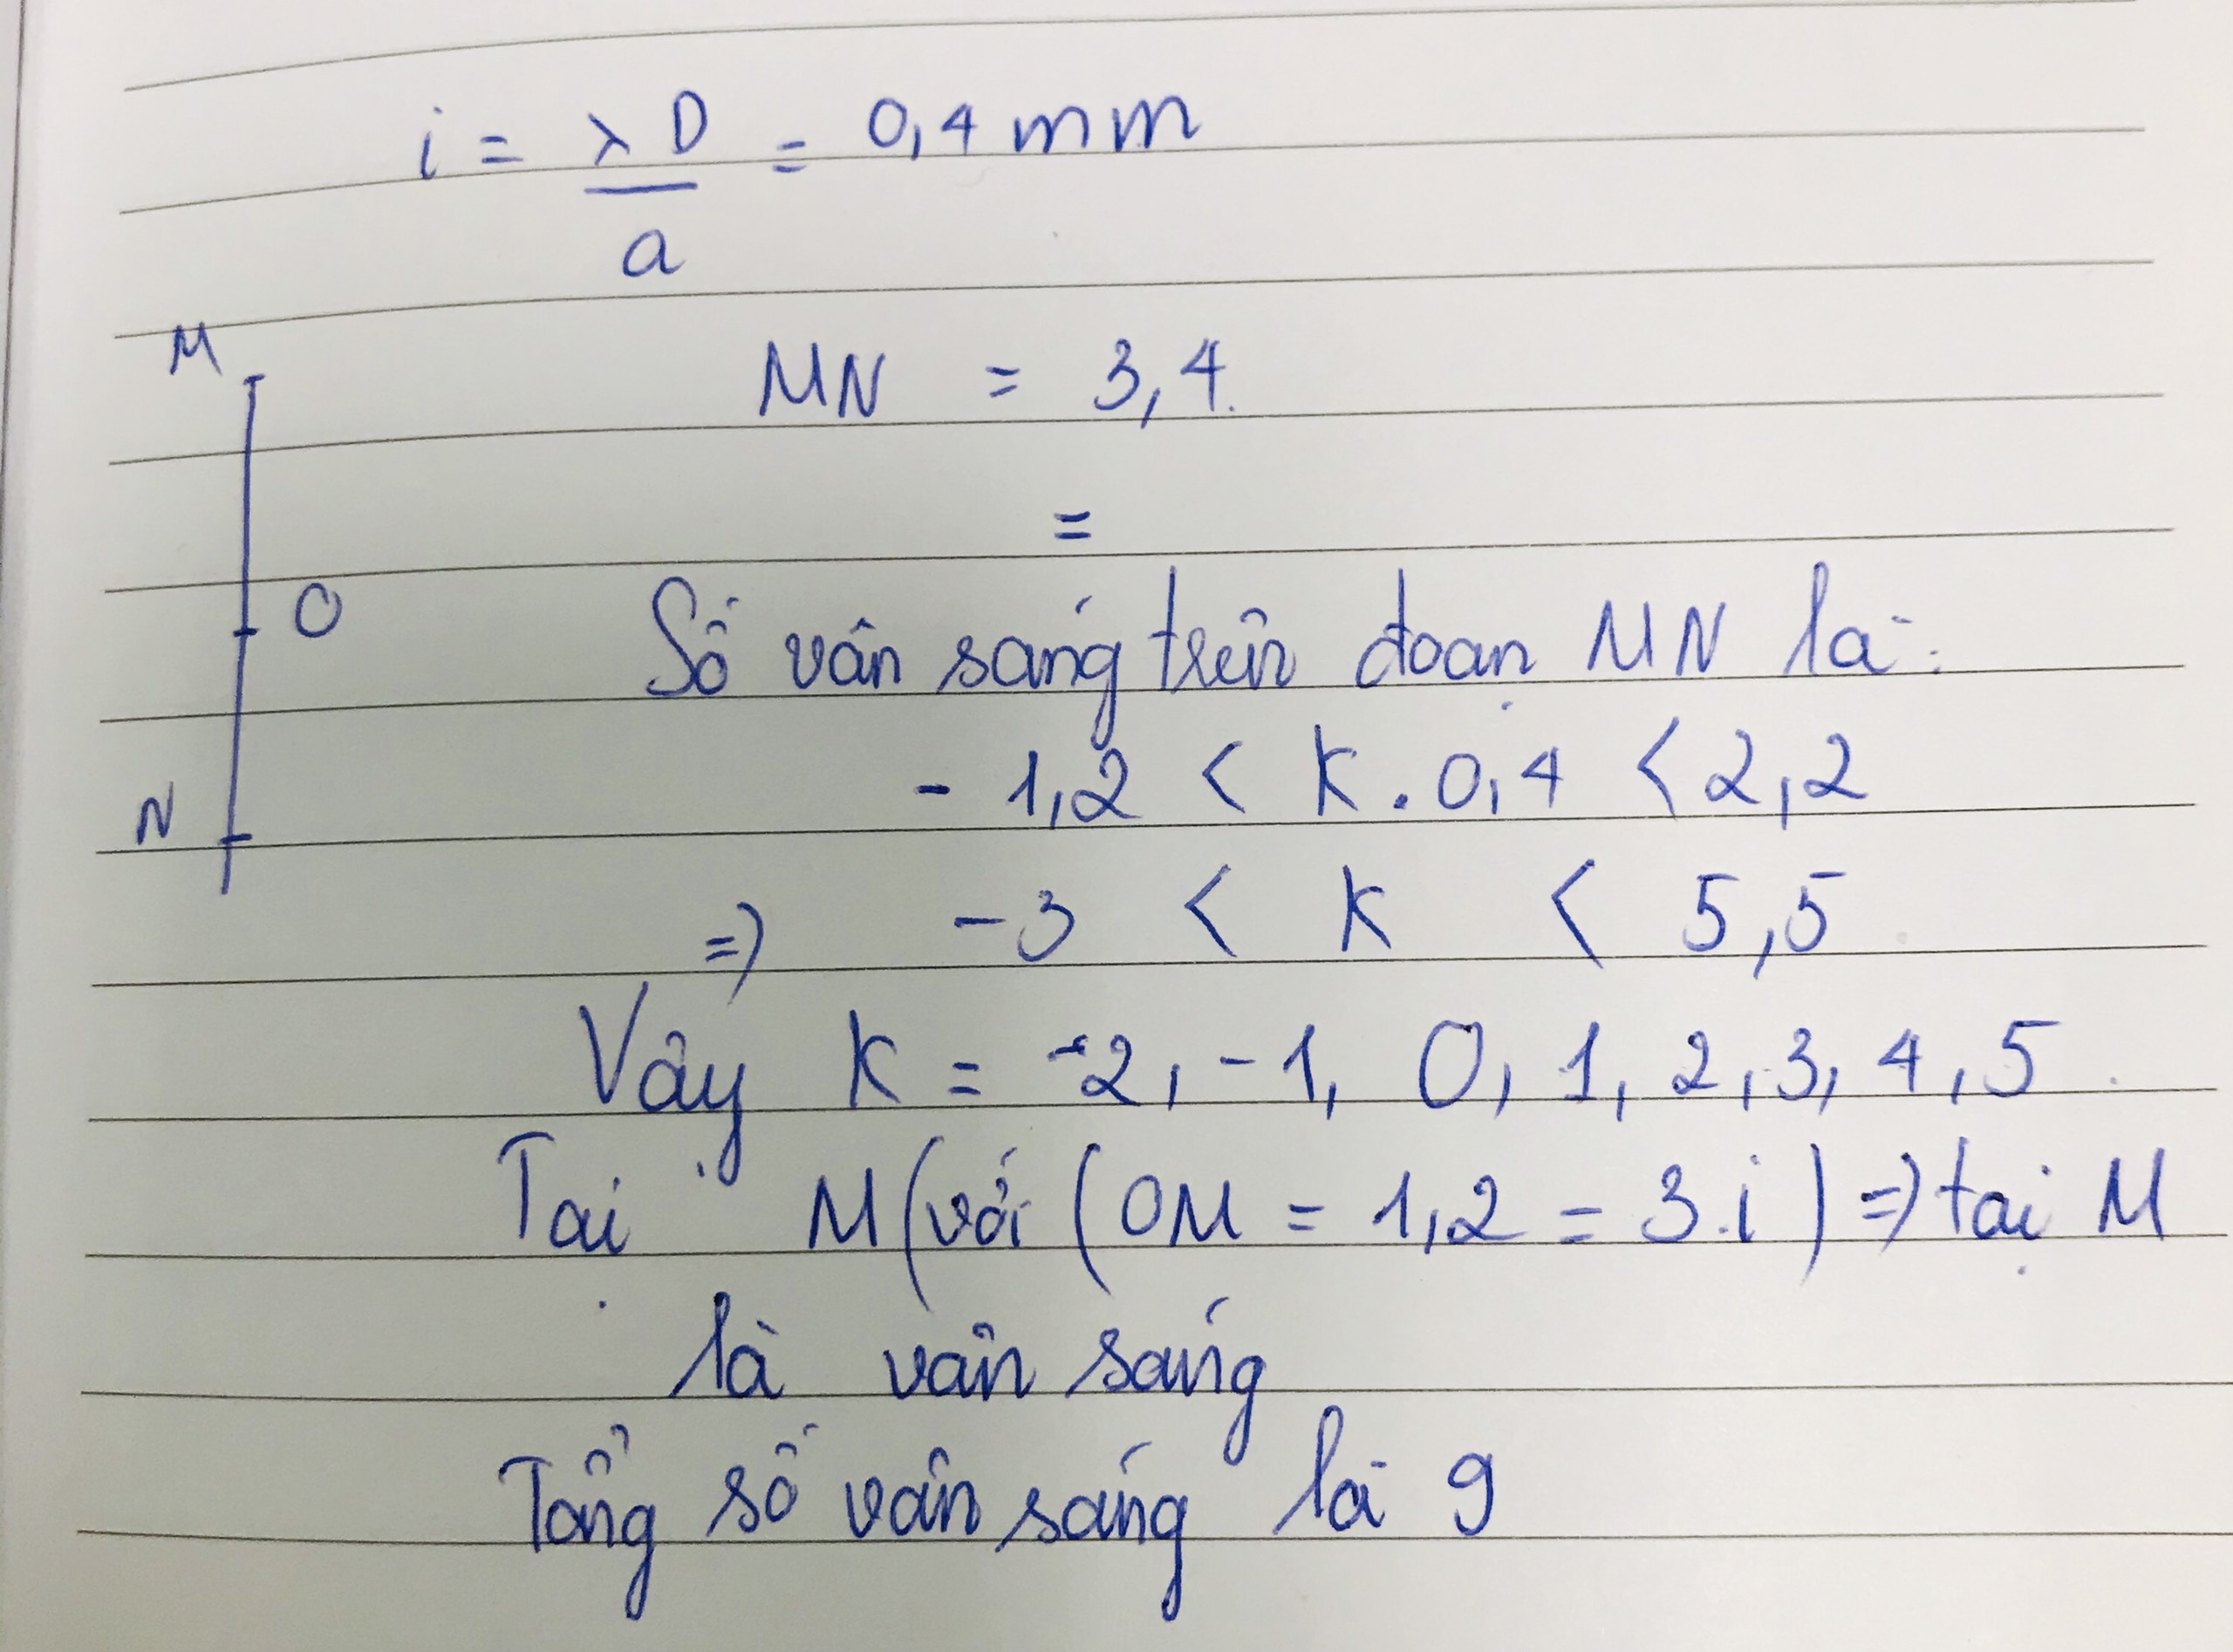 i = λD/a = 0,4 mm
M
MN = 3,4.
=
O
Số vân sáng trên đoạn MN là:
- 1,2 < K . 0,4 < 2,2
N
=> -3 < K < 5,5
Vậy K = -2, -1, 0, 1, 2, 3, 4, 5
Tại M (với (OM = 1,2 = 3.i) => tại M
là vân sáng
Tổng số vân sáng là 9